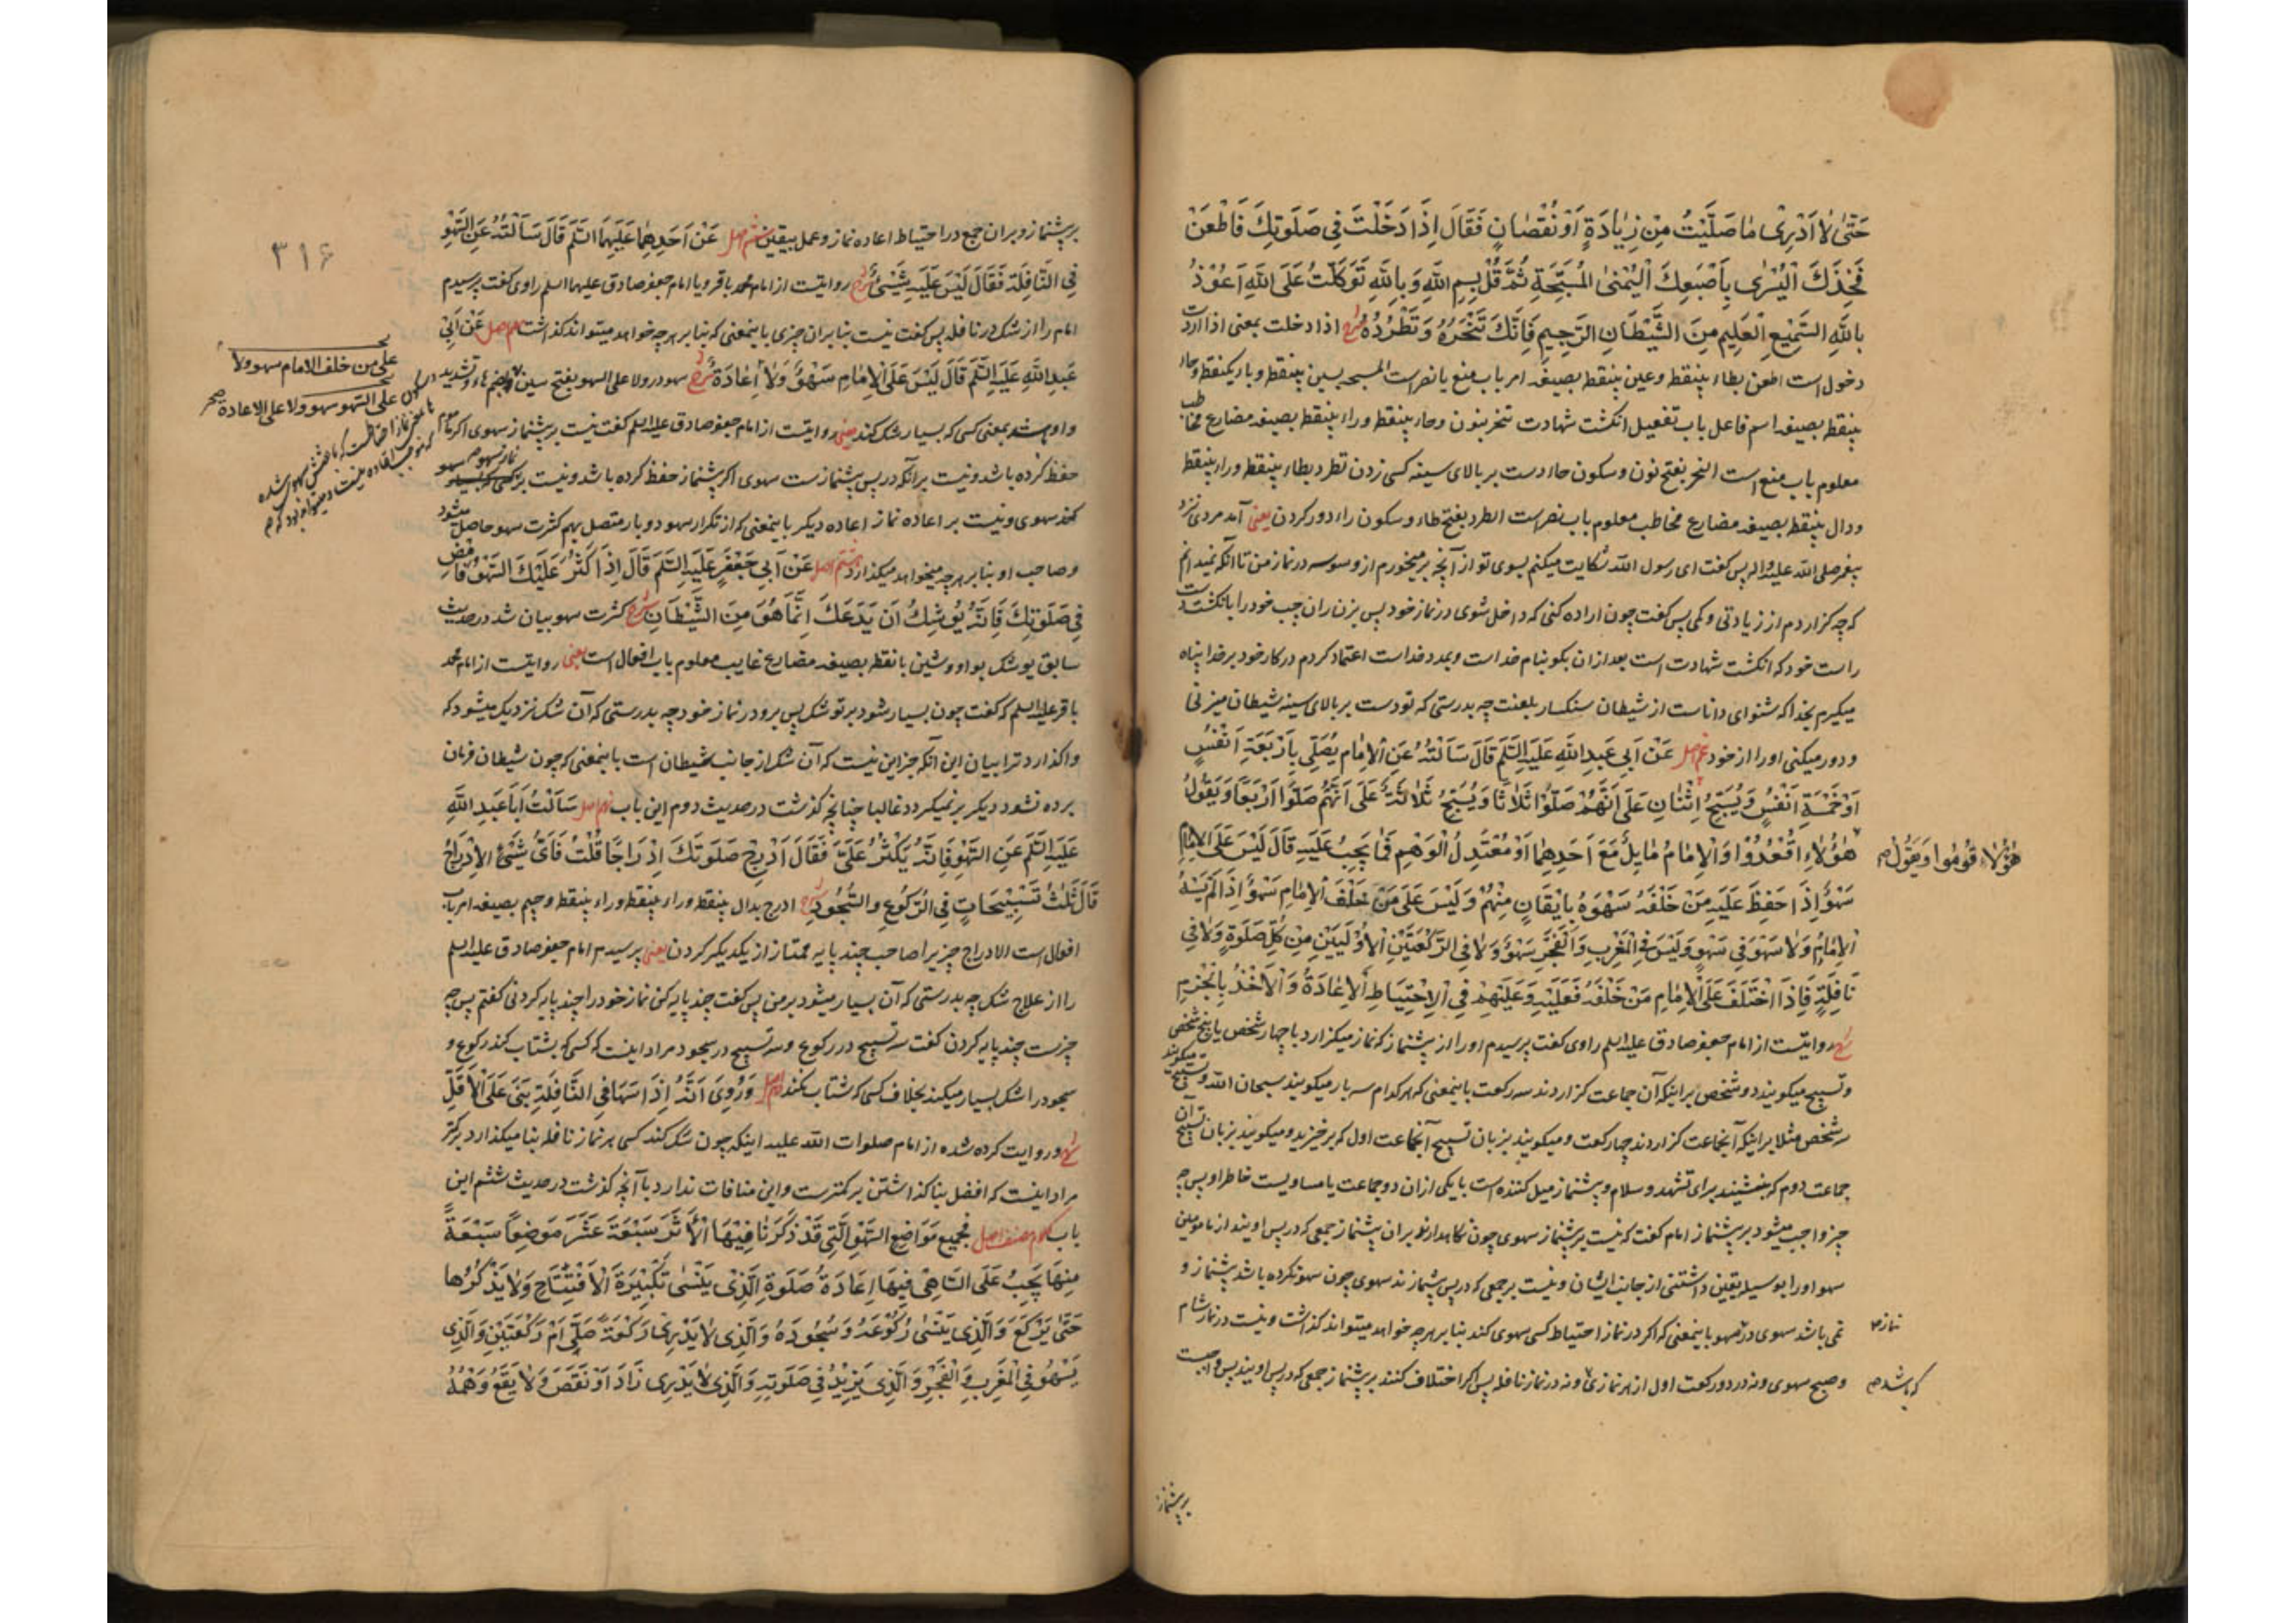 حَتّىٰ لٰا اَدْرِى مٰا صَلَّيْتُ مِنْ زِيٰادَةٍ اَوْ نُقْصٰانٍ فَقَالَ اِذَا دَخَلْتَ فِى صَلَوتِكَ فَاطْعَنْ
فَخِذَكَ الْيُسْرٰى بِاَصْبَعِكَ الْيُمْنىٰ المُسَبِّحَةِ ثُمَّ قُلْ بِسمِ اللّٰهِ وَ بِاللّٰهِ تَوَكَّلْتُ عَلَى اللّٰهِ اَعُوْذُ
بِاللّٰهِ السَّمِيْعِ الْعَلِيمِ مِنَ الشَّيْطَانِ الرَّجِيمِ فَاِنَّكَ تَنْحَرُهُ وَ تَطْرُدُهُ شرح اذا دخلت بمعنى اذا اردت
دخول است اطعن بطاء بينقطه و عين بينقطه بصيغه امر باب منع يا نصر است المسبحه بسين بينقطه و باء يكنقطه و حاء
بينقطه بصيغه اسم فاعل باب تفعيل انكشت شهادت تنحر بنون و حاء بينقطه و راء بينقطه بصيغه مضارع مخاطب
معلوم باب منع است النحر بفتح نون و سكون حاء دست بر بالاى سينه كسى زدن تطرد بطاء بينقطه و راء بينقطه
و دال بينقطه بصيغه مضارع مخاطب معلوم باب نصر است الطرد بفتح طاء و سكون راء دور كردن يعنى آمد مردى نزد
پيغمبر صلى اللّه عليه و اله پس كفت اى رسول اللّه شكايت ميكنم بسوى تو از آنچه برميخورم از وسوسه در نماز من تا آنكه نميدانم
كه چه كزاردم از زيادتى و كمى پس كفت چون اراده كنى كه داخل شوى در نماز خود پس بزن ران چپ خود را بانكشت دست
راست خود كه انكشت شهادت است بعد از ان بكو بنام خدا است و بمدد خدا است اعتماد كردم در كار خود بر خدا پناه
ميكيرم بخدا كه شنواى داناست از شيطان سنكسار بلعنت چه بدرستى كه تو دست بر بالاى سينه شيطان ميزنى
و دور ميكنى او را از خود پنجم اصل عَنْ اَبِى عَبدِ اللّٰهِ عَلَيهِ السَّلَم قَالَ سَاَلْتُهُ عَنِ الْاِمٰامِ يُصَلِّى بِاَرْبَعَةِ اَنْفُسٍ
اَوْ خَمْسَةِ اَنْفُسٍ وَ يُسَبِّحُ اِثْنَانِ عَلىٰ اَنَّهُمْ صَلَّوْا ثَلٰاثًا وَ يُسَبِّحُ ثَلٰاثَةٌ عَلىٰ اَنَّهُمْ صَلَّوْا اَرْبَعًا وَ يَقُولُ
هٰؤُلٰاءِ اقْعُدُوْا وَ الْاِمٰامُ مٰايِلٌ مَعَ اَحَدِهِمٰا اَوْ مُعْتَدِلُ الْوَهْمِ فَمٰا يَجِبُ عَلَيْهِ قَالَ لَيْسَ عَلَى الْاِمٰامِ
هٰؤُلٰاءِ قُومُوا وَ يَقُولُ صح
سَهْوٌ اِذَا حَفِظَ عَلَيْهِ مَنْ خَلْفَهُ سَهْوَهُ بِايْقَانٍ مِنْهُمْ وَ لَيْسَ عَلىٰ مَنْ خَلْفَ الْاِمٰامِ سَهْوٌ اِذَا لَمْ يَسْهُ
الْاِمٰامُ وَ لٰا سَهْوَ فِى سَهْوٍ وَ لَيْسَ فِى الْمَغْرِبِ وَ الْفَجْرِ سَهْوٌ وَ لٰا فِى الرَّكْعَتَيْنِ الْاُوْلَيَيْنِ مِنْ كُلِّ صَلَوةٍ وَ لٰا فِى
نَافِلَةٍ فَاِذَا اخْتَلَفَ عَلَى الْاِمٰامِ مَنْ خَلْفَهُ فَعَلَيْهِ وَ عَلَيْهِمْ فِى الْاِحْتِيَاطِ الْاِعٰادَةُ وَ الْاَخْذُ بِالْجَزْمِ
شرح روايتست از امام جعفر صادق عليه السلم راوى كفت پرسيدم او را از پشنماز كه نماز ميكزارد با چهار شخص يا پنج شخص
و تسبيح ميكويند دو شخص بر اينكه آن جماعت كزاردند سه ركعت باينمعنى كه هر كدام سه بار ميكويند سبحان اللّه و تسبيح ميكويند
سه شخص مثلا بر اينكه آنجماعت كزاردند چهار ركعت و ميكويند بزبان تسبيح آنجماعت اول كه برخيزيد و ميكويند بزبان تسبيح آن
جماعت دوم كه بنشينيد براى تشهد و سلام و پشنماز ميل كننده است با يكى از ان دو جماعت يا مساويست خاطر او پس چه
چيز واجب ميشود بر پشنماز امام كفت كه نيست بر پشنماز سهوى چون نكاه دارند بر ان پشنماز جمعى كه در پس اويند از مامومين
سهو او را بوسيله يقين داشتنى از جانب ايشان و نيست بر جمعى كه در پس پشنمازند سهوى چون سهو نكرده باشد پشنماز و
نمى باشد سهوى در سهو باينمعنى كه اكر در نماز احتياط كسى سهوى كند بنا بر هر چه خواهد ميتواند كذاشت و نيست در نماز شام
نماز صح
و صبح سهوى و نه در دو ركعت اول از هر نمازى و نه در نماز نافله پس اكر اختلاف كنند بر پشنماز جمعى كه در پس اويند پس واجبست
كه باشد صح
بر پشنماز
بر پشنماز و بر ان جمع در احتياط اعاده نماز و عمل بيقين ششم اصل عَنْ اَحَدِهِمٰا عَلَيْهِمَا السَّلَم قَالَ سَاَلْتُهُ عَنِ السَّهْوِ
فِى النَّافِلَةِ فَقَالَ لَيْسَ عَلَيْهِ شَيْئٌ شرح روايتست از امام محمد باقر و يا امام جعفر صادق عليهما السلم راوى كفت پرسيدم
امام را از شك در نافله پس كفت نيست بنا بر ان چيزى باينمعنى كه بنا بر هر چه خواهد ميتواند كذاشت هفتم اصل عَنْ اَبِى
عَبدِ اللّٰهِ عَلَيهِ السَّلَم قَالَ لَيْسَ عَلَى الْاِمٰامِ سَهْوٌ وَ لٰا اِعٰادَةٌ شرح سهو در و لا على السهو بفتح سين و ضم هاء و تشديد
على من خلف الامام سهو و لا
على السهو سهو و لا على الاعادة صح
واو شد بمعنى كسى كه بسيار شك كند يعنى روايتست از امام جعفر صادق عليه السلم كفت نيست بر پشنماز سهوى اكر ماموم
حفظ كرده باشد و نيست بر آنكه در پس پشنماز ست سهوى اكر پشنماز حفظ كرده باشد و نيست بر
كند سهوى و نيست بر اعاده نماز اعاده ديكر باينمعنى كه از تكرار سهو دو بار متصل بهم كثرت سهو حاصل ميشود
و صاحب او بنا بر هر چه ميخواهد ميكذارد هشتم اصل عَنْ اَبِى جَعْفَرٍ عَلَيهِ السَّلَم قَالَ اِذَا كَثُرَ عَلَيْكَ السَّهْوُ فَامْضِ
فِى صَلَوتِكَ فَاِنَّهُ يُوْشِكُ اَنْ يَدَعَكَ اِنَّمَا هُوَ مِنَ الشَّيْطَانِ شرح كثرت سهو بيان شد در حديث
سابق يوشك بواو و شين با نقطه بصيغه مضارع غايب معلوم باب افعال است يعنى روايتست از امام محمد
باقر عليه السلم كه كفت چون بسيار شود بر تو شك پس برو در نماز خود چه بدرستى كه آن شك نزديك ميشود كه
واكذارد ترا بيان اين آنكه جز اين نيست كه آن شك از جانب شيطان است باينمعنى كه چون شيطان فرمان
برده نشود ديكر بر نميكردد غالبا چنانچه كذشت در حديث دوم اين باب نهم اصل سَاَلْتُ اَبَا عَبدِ اللّٰهِ
عَلَيهِ السَّلَم عَنِ السَّهْوِ فَاِنَّهُ يَكْثُرُ عَلَىَّ فَقَالَ اَدْرِجْ صَلَوتَكَ اِدْرَاجًا قُلْتُ فَاَىُّ شَيْئٍ الْاِدْرَاجُ
قَالَ ثَلٰثُ تَسْبِيْحَاتٍ فِى الرُّكُوعِ و السُّجُودِ شرح ادرج بدال بينقطه و راء بينقطه و جيم بصيغه امر باب
افعال است الادراج چيزيرا صاحب چند پايه ممتاز از يكديكر كردن يعنى پرسيدم امام جعفر صادق عليه السلم
را از علاج شك چه بدرستى كه آن بسيار ميشود بر من پس كفت چند پايه كن نماز خود را چند پايه كردنى كفتم پس چه
چيزست چند پايه كردن كفت سه تسبيح در ركوع و سه تسبيح در سجود مراد اينست كه كسى كه بشتاب كند ركوع و
سجود را شك بسيار ميكند بخلاف كسى كه شتاب نكند دهم اصل وَ رُوِىَ اَنَّهُ اِذَا سَهَا فِى النَّافِلَةِ بَنىٰ عَلَى الْاَقَلِّ
شرح و روايت كرده شده از امام صلوات اللّه عليه اينكه چون شك كند كسى در نماز نافله بنا ميكذارد بر كمتر
مراد اينست كه افضل بنا كذاشتن بر كمترست و اين منافات ندارد با آنچه كذشت در حديث ششم اين
باب كلام مصنف اصل فجميع مَوَاضِعِ السَّهْوِ الَّتِى قَدْ ذَكَرْنَا فِيْهَا الْاَثَرَ سَبْعَةَ عَشَرَ مَوْضِعًا سَبْعَةٌ
مِنْهَا يَجِبُ عَلَى السَّاهِى فِيْهَا اِعَادَةُ صَلَوةٍ الَّذِىْ يَنْسىٰ تَكْبِيْرَةَ الْاِفْتِتَاحِ وَ لٰا يَذْكُرُهَا
حَتّىٰ يَرْكَعَ وَ الَّذِى يَنْسىٰ رُكُوْعَهُ وَ سُجُودَهُ وَ الَّذِى لٰا يَدْرِى رَكْعَةً صَلّىٰ اَمْ رَكْعَتَيْنِ وَ الَّذِى
يَسْهُوْ فِى الْمَغْرِبِ وَ الْفَجْرِ وَ الَّذِى يَزِيْدُ فِى صَلَوتِهِ وَ الَّذِى لٰا يَدْرِى زَادَ اَوْ نَقَصَ وَ لٰا يَقَعُ وَهْمُهُ
٣١۶